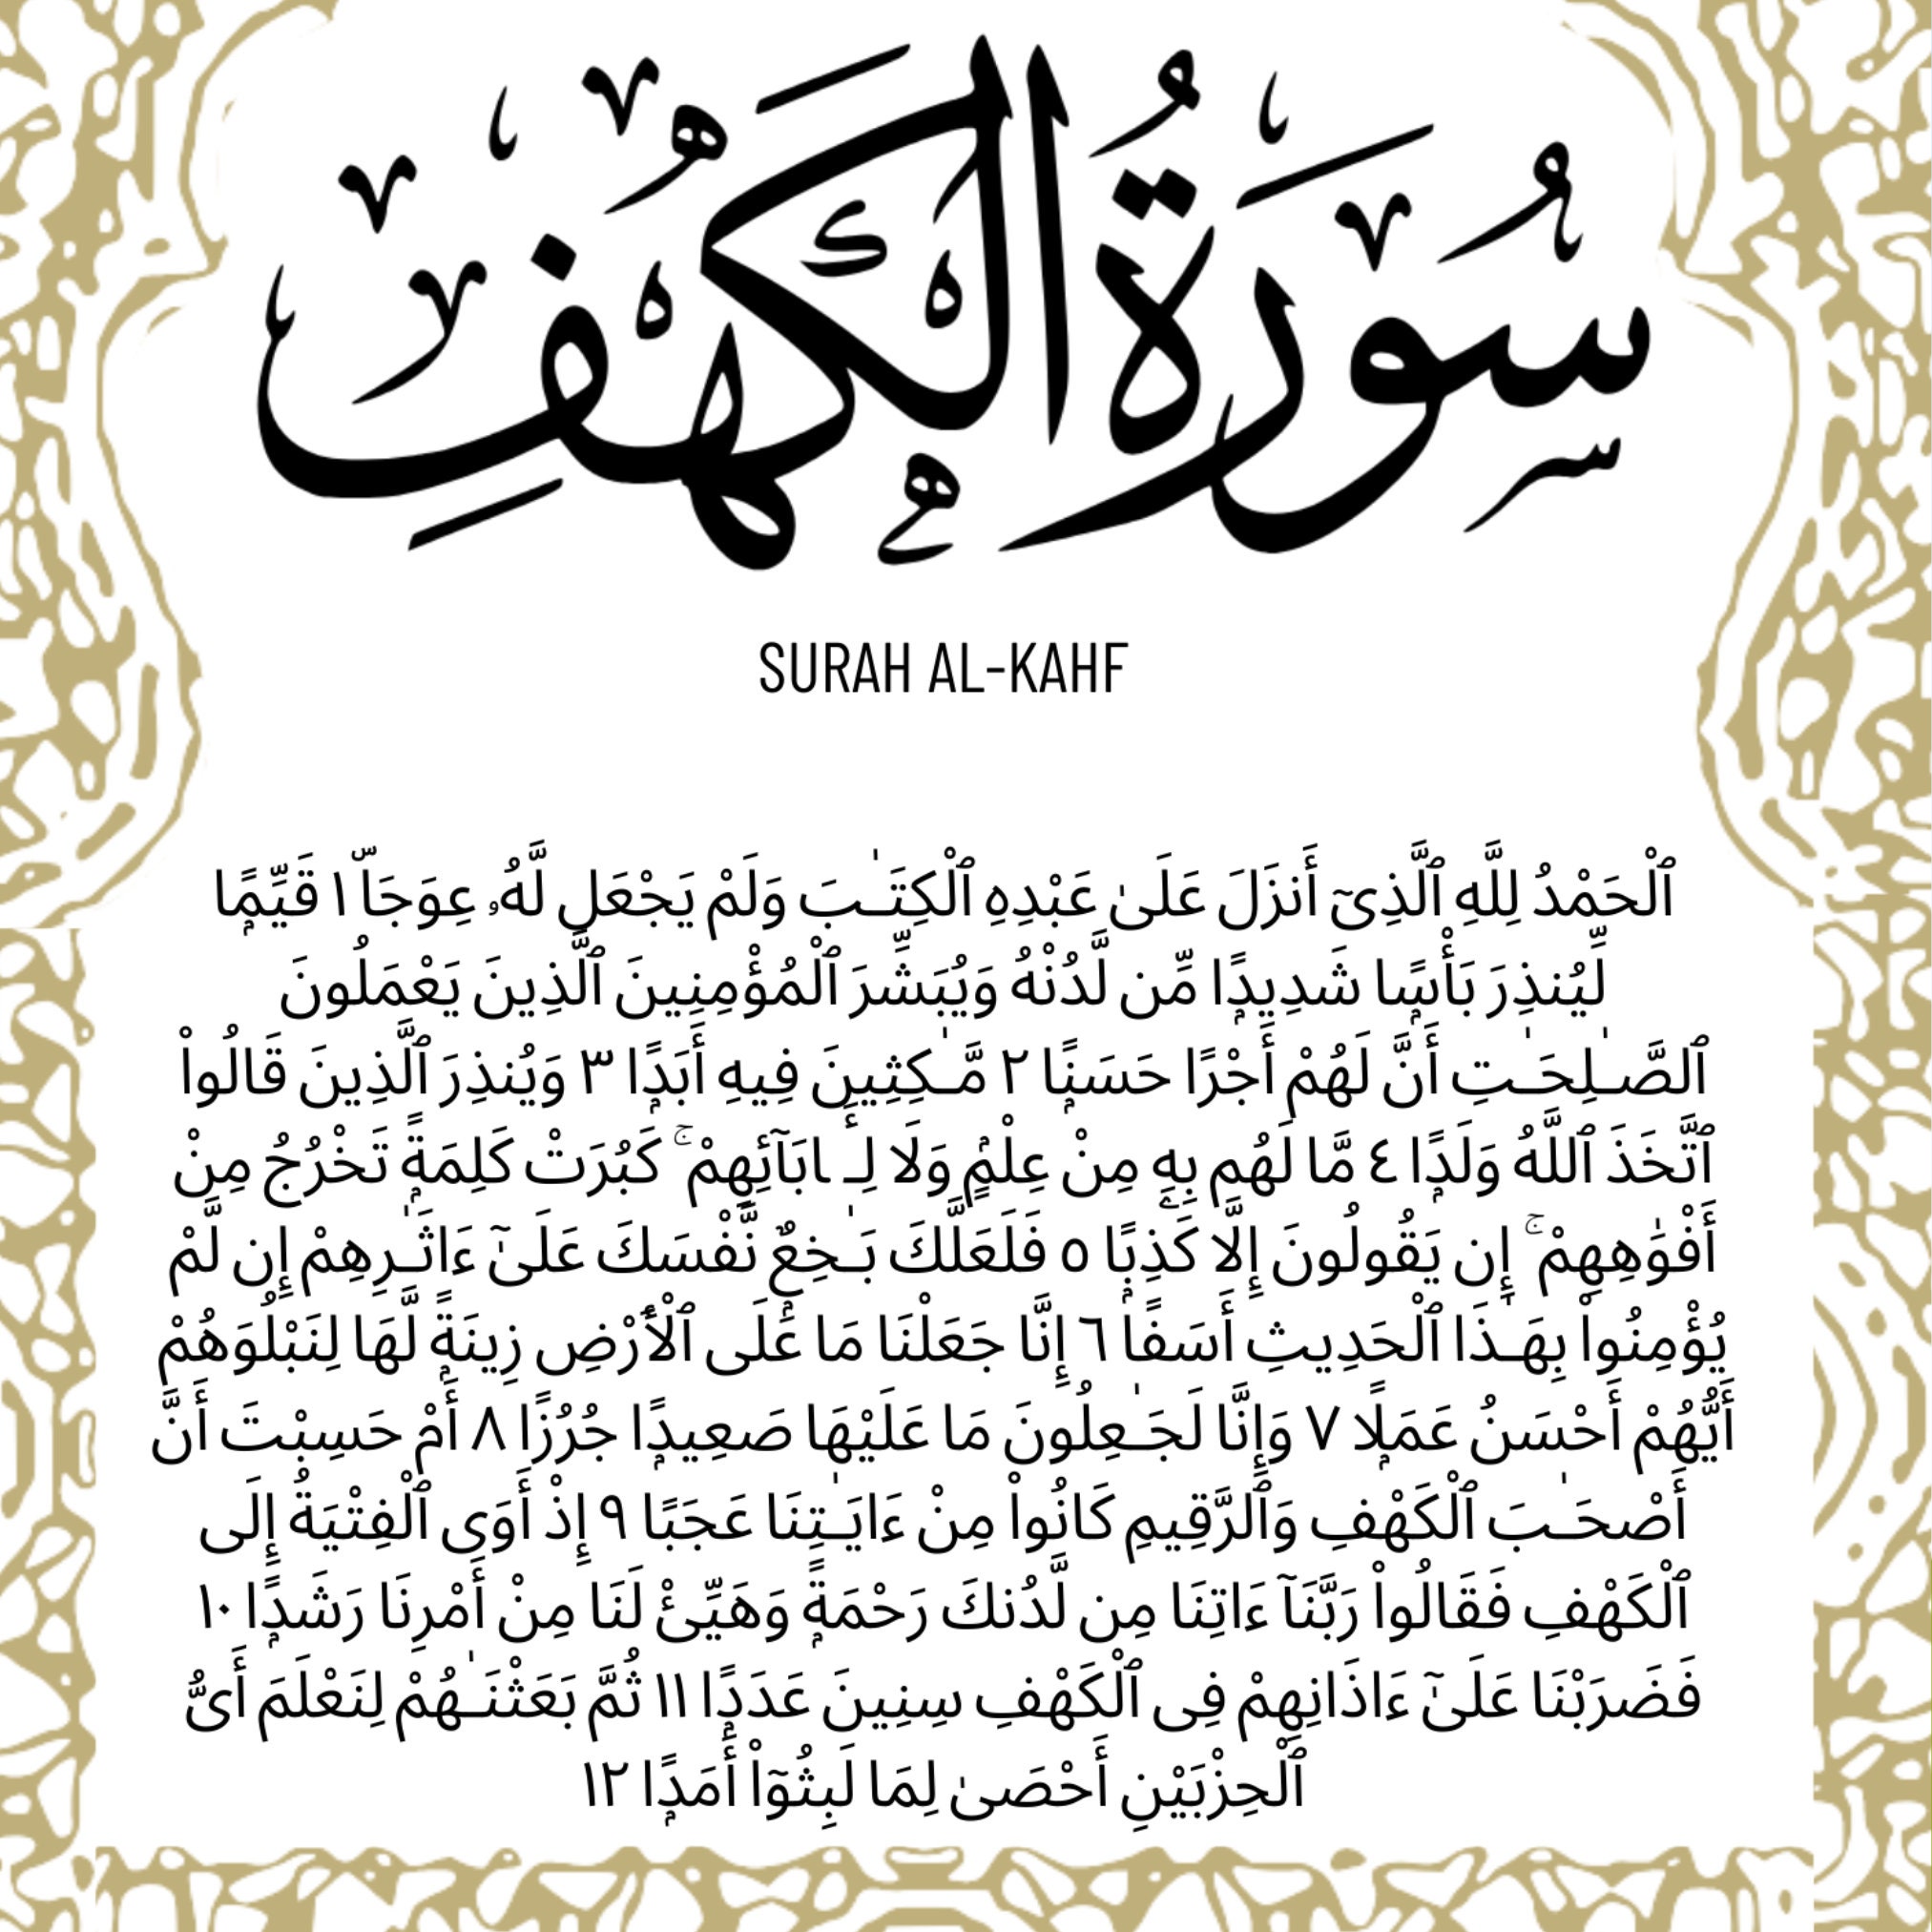 سُورَةُ الْكَهْفِ
SURAH AL-KAHF
ٱلْحَمْدُ لِلَّهِ ٱلَّذِىٓ أَنزَلَ عَلَىٰ عَبْدِهِ ٱلْكِتَـٰبَ وَلَمْ يَجْعَل لَّهُۥ عِوَجَاۜ ١ قَيِّمًۭا
لِّيُنذِرَ بَأْسًۭا شَدِيدًۭا مِّن لَّدُنْهُ وَيُبَشِّرَ ٱلْمُؤْمِنِينَ ٱلَّذِينَ يَعْمَلُونَ
ٱلصَّـٰلِحَـٰتِ أَنَّ لَهُمْ أَجْرًا حَسَنًۭا ٢ مَّـٰكِثِينَ فِيهِ أَبَدًۭا ٣ وَيُنذِرَ ٱلَّذِينَ قَالُوا۟
ٱتَّخَذَ ٱللَّهُ وَلَدًۭا ٤ مَّا لَهُم بِهِۦ مِنْ عِلْمٍۢ وَلَا لِـَٔابَآئِهِمْ ۚ كَبُرَتْ كَلِمَةًۭ تَخْرُجُ مِنْ
أَفْوَٰهِهِمْ ۚ إِن يَقُولُونَ إِلَّا كَذِبًۭا ٥ فَلَعَلَّكَ بَـٰخِعٌۭ نَّفْسَكَ عَلَىٰٓ ءَاثَـٰرِهِمْ إِن لَّمْ
يُؤْمِنُوا۟ بِهَـٰذَا ٱلْحَدِيثِ أَسَفًا ٦ إِنَّا جَعَلْنَا مَا عَلَى ٱلْأَرْضِ زِينَةًۭ لَّهَا لِنَبْلُوَهُمْ
أَيُّهُمْ أَحْسَنُ عَمَلًۭا ٧ وَإِنَّا لَجَـٰعِلُونَ مَا عَلَيْهَا صَعِيدًۭا جُرُزًا ٨ أَمْ حَسِبْتَ أَنَّ
أَصْحَـٰبَ ٱلْكَهْفِ وَٱلرَّقِيمِ كَانُوا۟ مِنْ ءَايَـٰتِنَا عَجَبًا ٩ إِذْ أَوَى ٱلْفِتْيَةُ إِلَى
ٱلْكَهْفِ فَقَالُوا۟ رَبَّنَآ ءَاتِنَا مِن لَّدُنكَ رَحْمَةًۭ وَهَيِّئْ لَنَا مِنْ أَمْرِنَا رَشَدًۭا ١٠
فَضَرَبْنَا عَلَىٰٓ ءَاذَانِهِمْ فِى ٱلْكَهْفِ سِنِينَ عَدَدًۭا ١١ ثُمَّ بَعَثْنَـٰهُمْ لِنَعْلَمَ أَىُّ
ٱلْحِزْبَيْنِ أَحْصَىٰ لِمَا لَبِثُوٓا۟ أَمَدًۭا ١٢